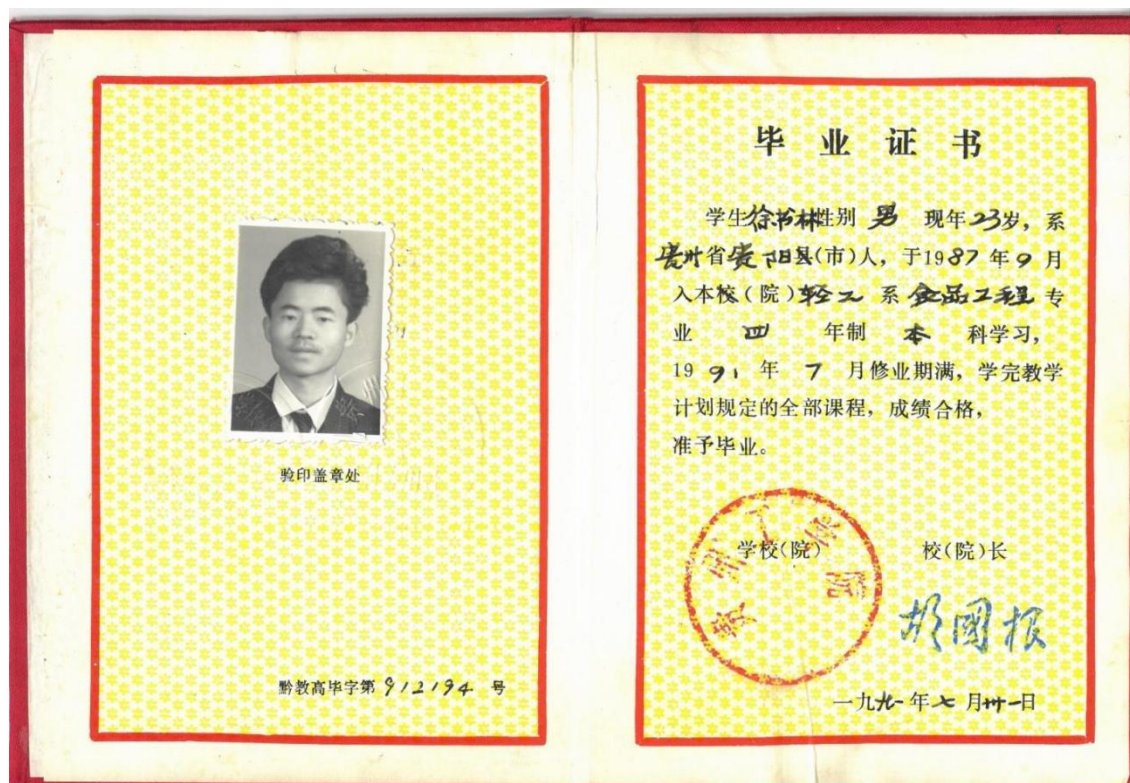 验印盖章处
黔教高毕字第912194号
毕业证书
学生徐书林性别 男 现年23岁，系
贵州省贵阳县(市)人，于1987年9月
入本校(院)轻工系食品工程专
业 四 年制 本 科学习，
1991年7月修业期满，学完教学
计划规定的全部课程，成绩合格，
准予毕业。
贵州工学院
学校(院) 校(院)长
胡國根
一九九一年七月卅一日